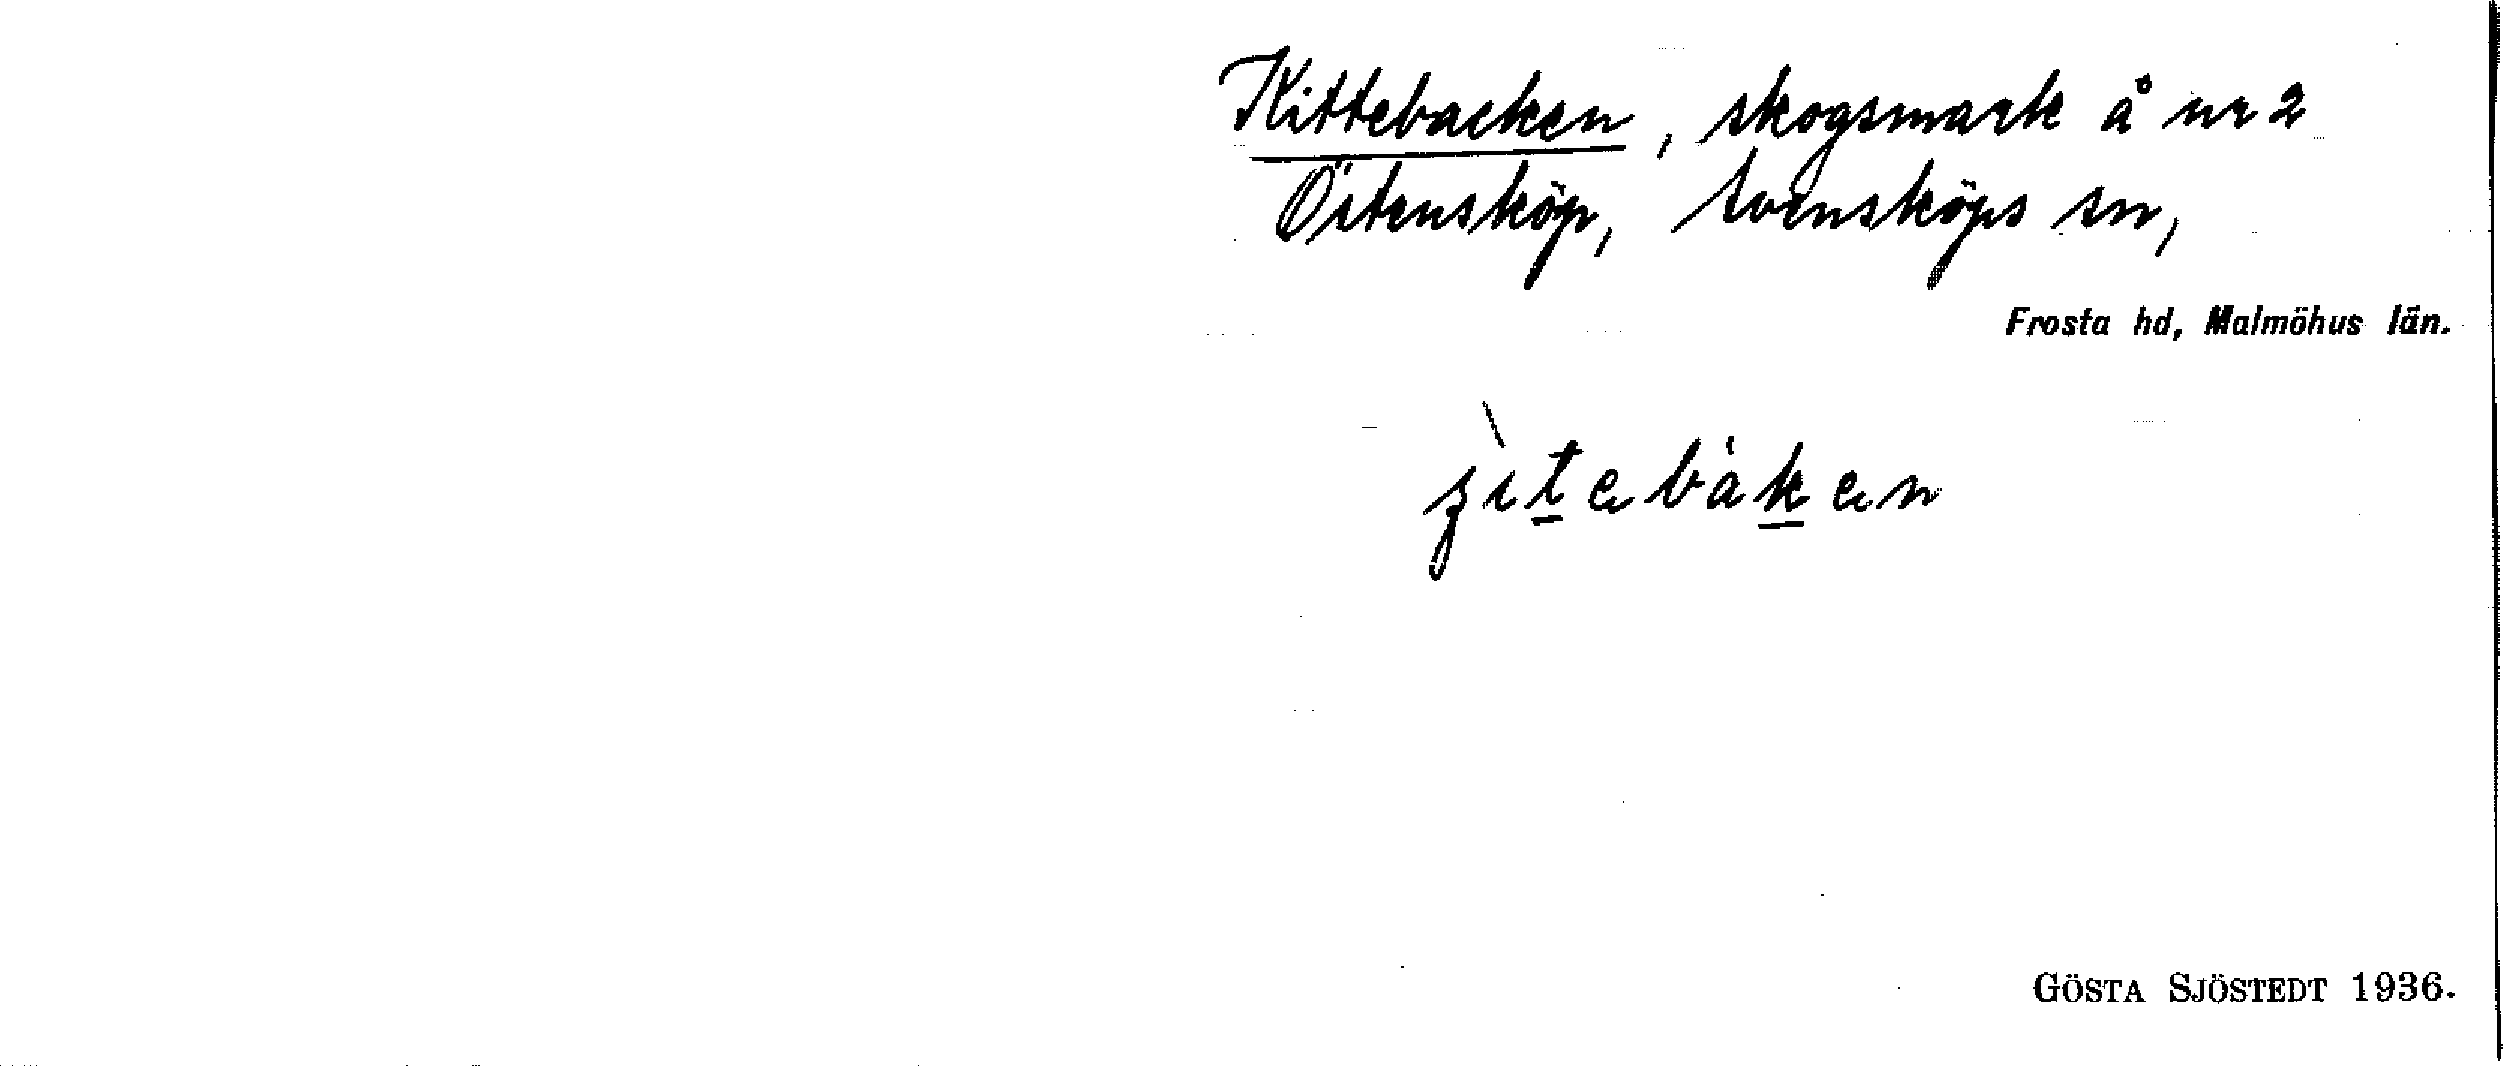 Kittebacken, skogsmark å nr 2
Östensköp, Svensköps sn,
Frosta hd, Malmöhus län.
GÖSTA SJÖSTEDT 1936.